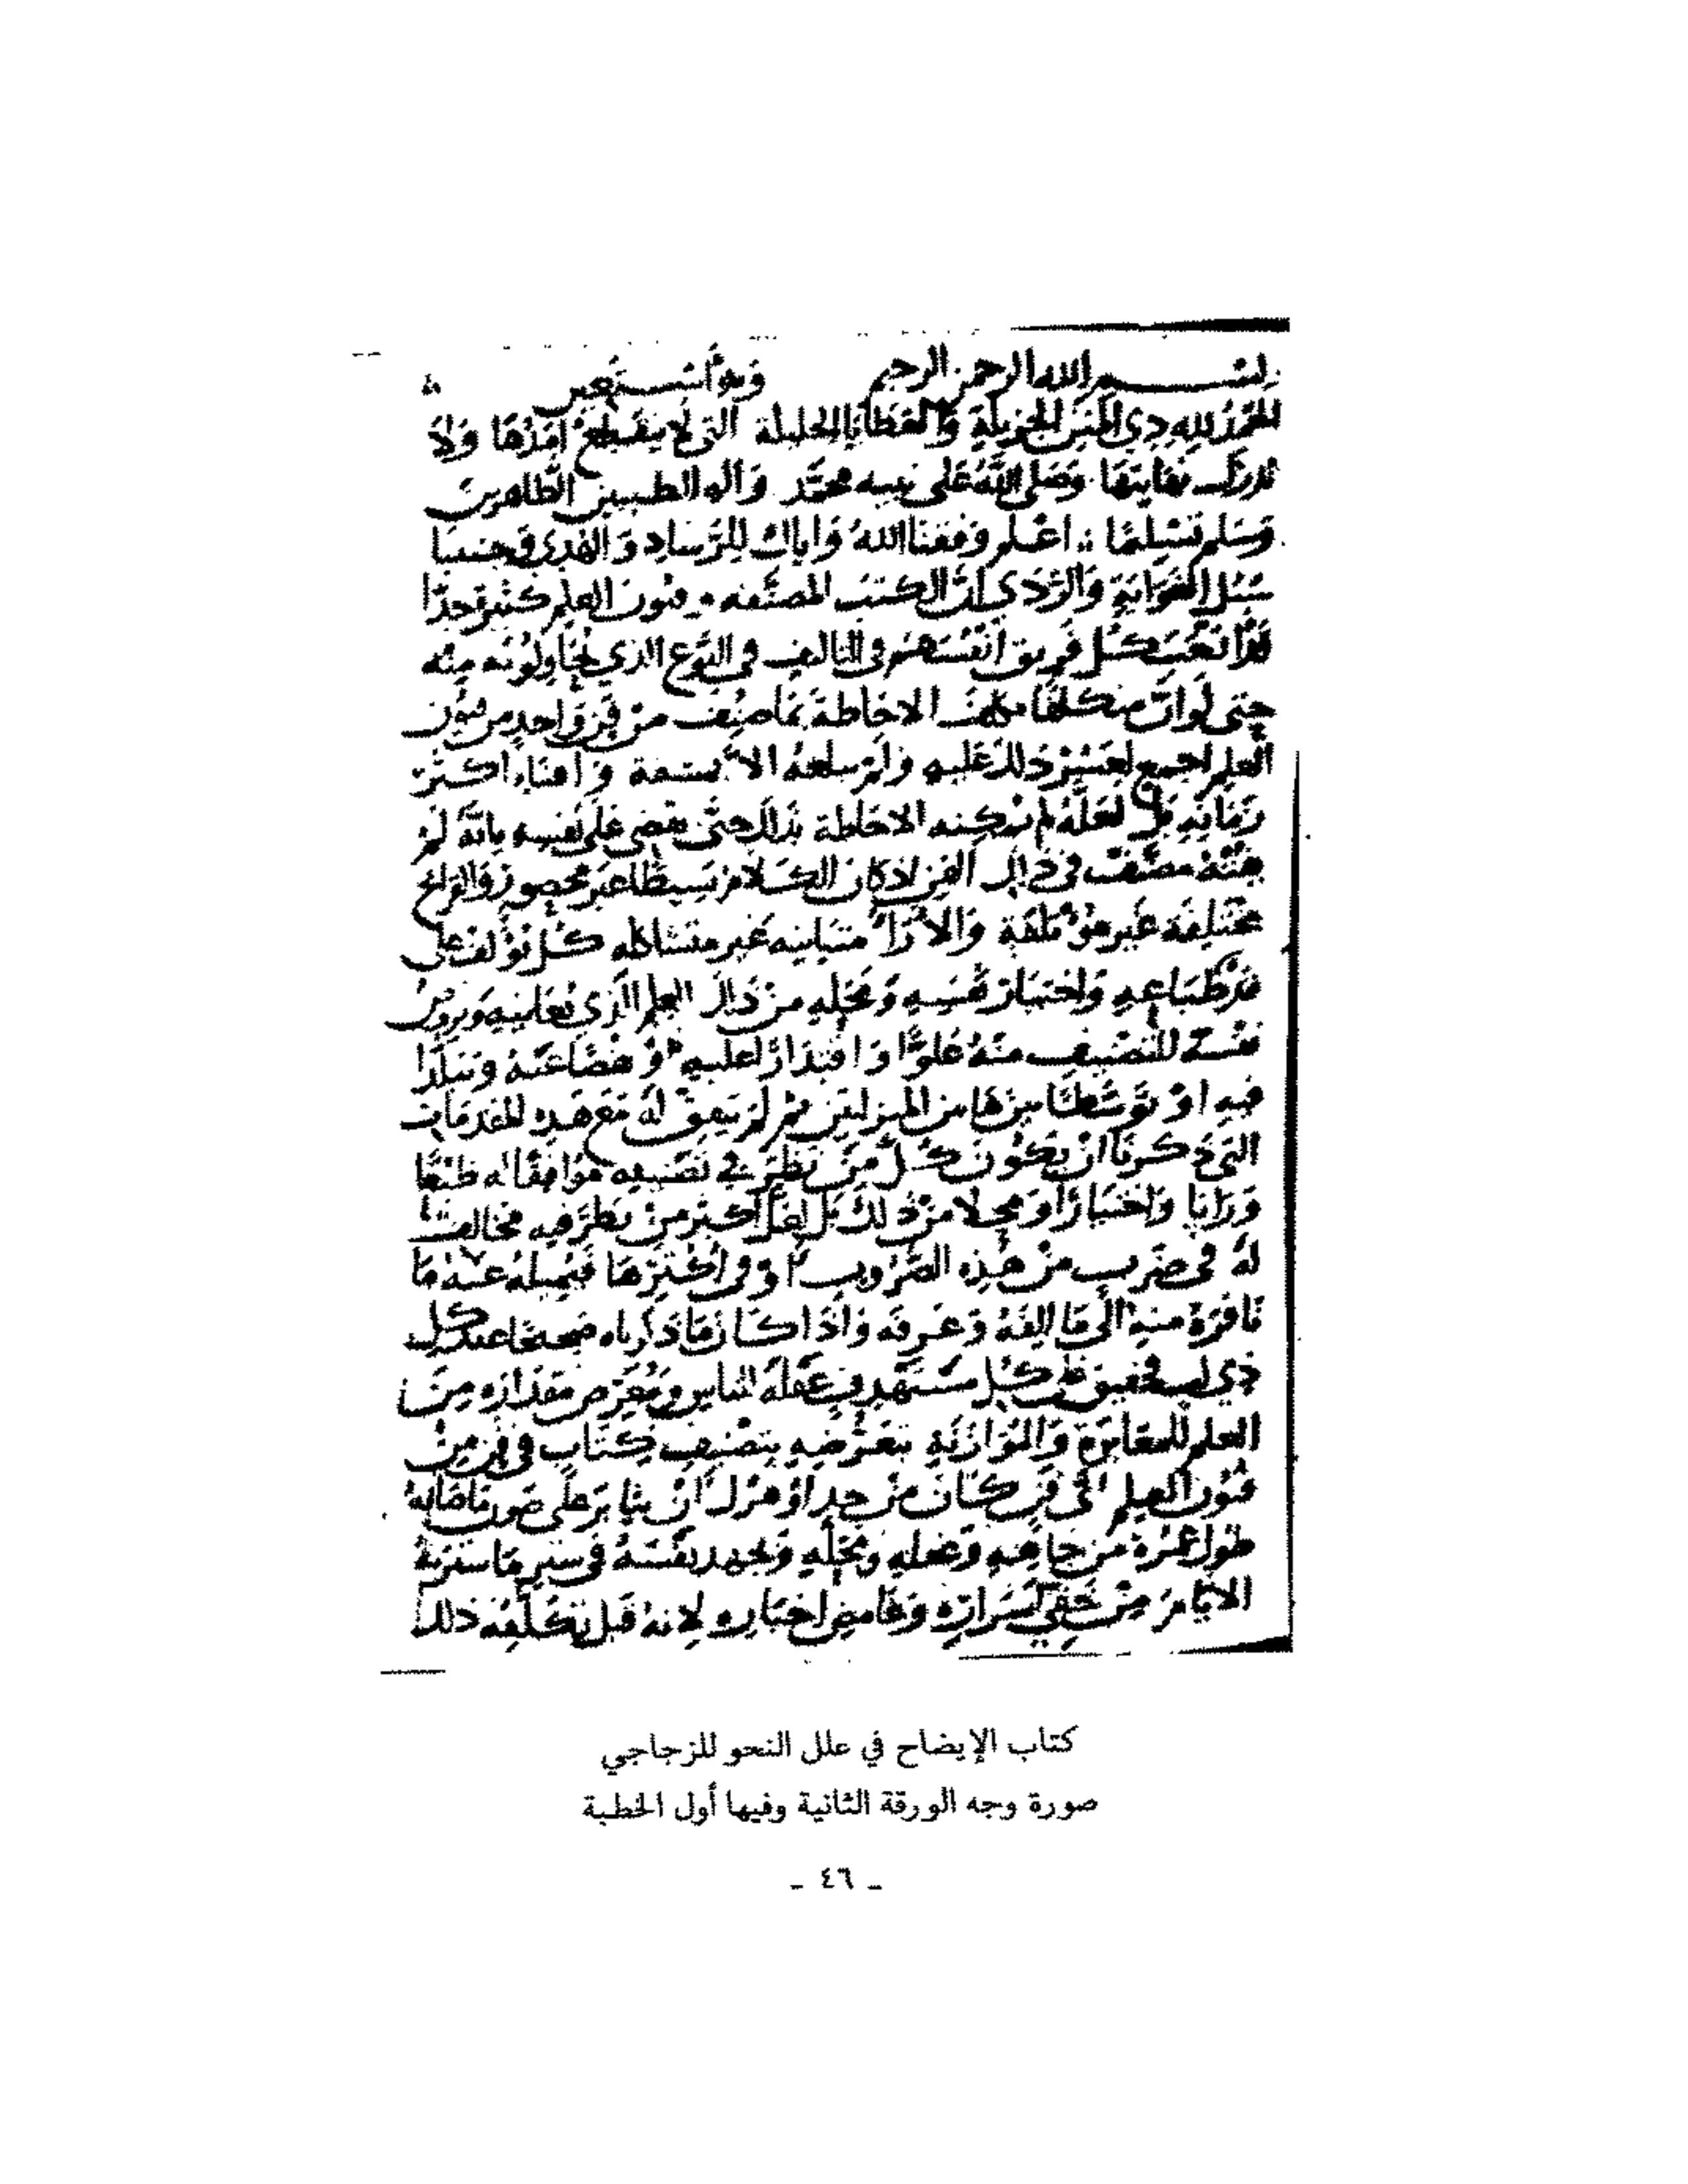 بسم الله الرحمن الرحيم وبه أستعين
الحمد لله ذي المنن الجزيلة والعطايا الجليلة التي لا ينقطع امدها ولا
تدرك نهايتها وصلى الله على نبيه محمد واله الطيبين الطاهرين
وسلم تسليما اعلم وفقنا الله واياك للرشاد والهدى وجنبنا
سبل الغواية والردى ان الكتب المصنفة فنون العلم كثيرة جدا
قد اتعب كل فريق انفسهم في التاليف في النوع الذي يحاولونه منه
حتى لو ان متكلفا تكلف الاحاطة بما صنف من فن واحد من فنون
العلم اجمع لعسر ذلك عليه ولم يبلغه الا وافناء اكثر
زمانه بل لعله لم يمكنه الاحاطة بذلك حتى يقضي على نفسه بانه لم
يفته مصنف في ذلك الفن اذ كان الكلام بسيطا غير محصور والقرائح
مختلفة غير مؤتلفة والاراء متباينة غير متشاكلة كل يؤلف على
قدر طباعه واختيار نفسه ومحله من ذلك العلم الذي
نفسه للتصنيف منه علوا واقتدارا عليه او
فيه او توسطا بين هاتين المنزلتين ثم لم يتفق له مع هذه المقدمات
التي ذكرنا ان يكون كل من نظر في تصنيفه موافقا له طبعا
ورايا واختيارا ومحلا من ذلك بل لعل اكثر من نظر فيه مخالف
له في ضرب من هذه الضروب او في اكثرها فيميله عنه ما
نافره منه الى ما الفه وعرفه واذا كان ما ذكرناه صحيحا عند كل
ذي لب فحقيق على كل مستهدف عقله للناس ومعرض مقداره من
العلم للمعايرة والموازنة بتعرضه بتصنيف كتاب في فن من
فنون العلم الى فن كان من جد او هزل ان يثابر على صون ما صانه
طول عمره من جاهه وعقله ومحله ويجهد نفسه في ستر ما سترته
الايام من خفي اسراره وغامض اختياره لانه قبل تكلفه ذلك
كتاب الإيضاح في علل النحو للزجاجي
صورة وجه الورقة الثانية وفيها أول الخطبة
- ٤٦ -